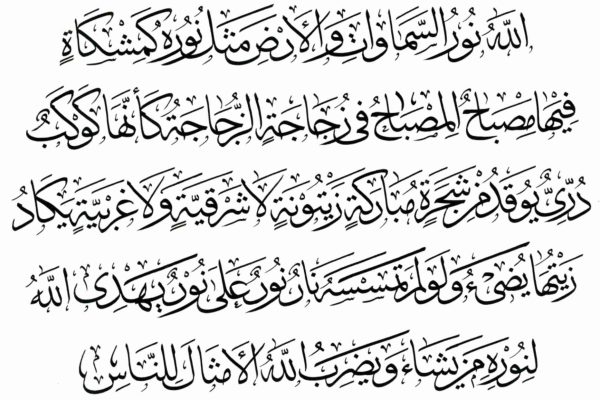 اللَّهُ نُورُ السَّمَاوَاتِ وَالْأَرْضِ مَثَلُ نُورِهِ كَمِشْكَاةٍ
فِيهَا مِصْبَاحٌ الْمِصْبَاحُ فِي زُجَاجَةٍ الزُّجَاجَةُ كَأَنَّهَا كَوْكَبٌ
دُرِّيٌّ يُوقَدُ مِنْ شَجَرَةٍ مُبَارَكَةٍ زَيْتُونَةٍ لَا شَرْقِيَّةٍ وَلَا غَرْبِيَّةٍ يَكَادُ
زَيْتُهَا يُضِيءُ وَلَوْ لَمْ تَمْسَسْهُ نَارٌ نُورٌ عَلَى نُورٍ يَهْدِي اللَّهُ
لِنُورِهِ مَنْ يَشَاءُ وَيَضْرِبُ اللَّهُ الْأَمْثَالَ لِلنَّاسِ